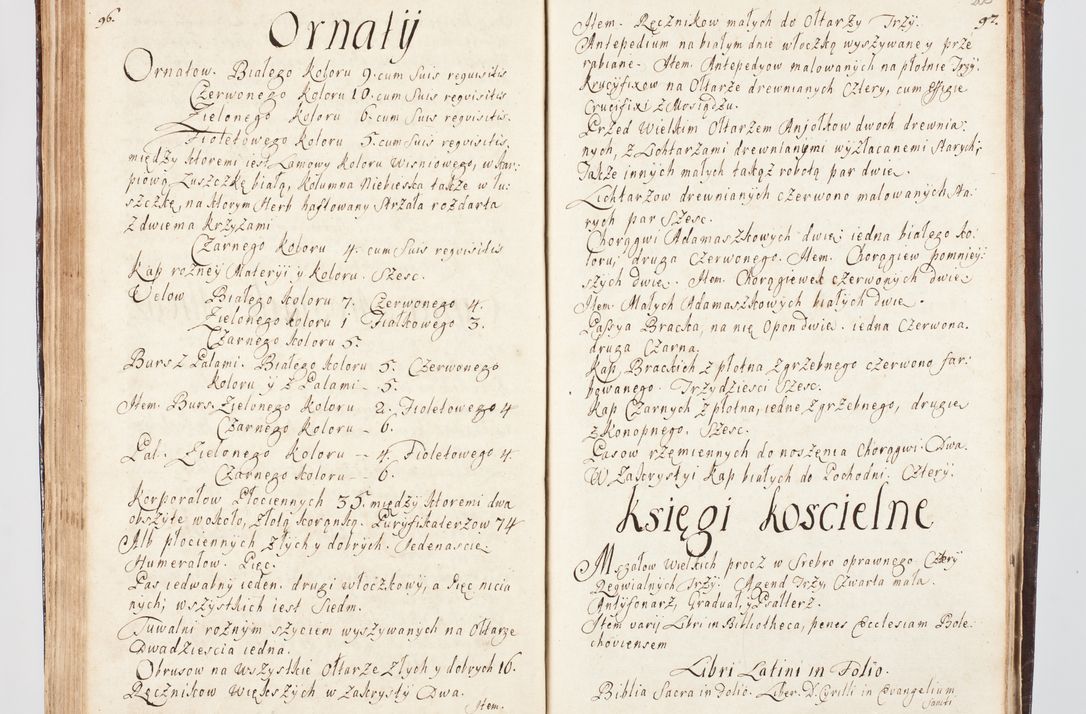 96.
Ornatÿ
Ornatow. Białego koloru 9. cum suis requisitis
Czerwonego koloru 10. cum suis requisitis
Zielonego koloru 6. cum suis requisitis.
Fioletowego koloru 5. cum suis requisitis,
między ktoremi iest Lamowy koloru Wisniowego, w kar,
piową Łuszczkę białą, kolumna Niebieska także w łu:
szczkę, na ktorym Herb haftowany Strzała rozdarta
z dwiema krzyżami
Czarnego koloru 4. cum suis requisitis
Kap rozney Materyi y koloru. Szesc.
Velow Białego koloru 7. Czerwonego 4.
Zielonego koloru 1 Fiałkowego 3.
Czarnego koloru 5.
Burs z Palami. Białego koloru 5. Czerwonego
koloru ÿ z Palami - 5.
Item. Burs. Zielonego koloru 2. Fioletowego 4
Czarnego koloru - 6.
Pal. Zielonego koloru - 4. Fioletowego 4.
Czarnego koloru - - 6.
Korporałow Płociennych 35. między ktoremi dwa
obszyte wokoło, złotą koronką. Puryfikaterzow 74
Alb płociennych złych y dobrych. Jedenascie
Humerałow. Pięc.
Pas iedwabny ieden. drugi włoczkowy, a Pięc nicia
nych; wszystkich iest Siedm.
Tuwalni roznym szyciem wyszywanych na Ołtarze
Dwadziescia iedna.
Obrusow na Wszystkie Ołtarze złych y dobrych 16.
Ręcznikow Większych w Zakrysty Dwa.
Item.
97.
Item. Ręcznikow małych do Ołtarzy Trzy.
Antepedium na białym dnie włoczką wyszywane y prze
rabiane. Item. Antepedyow malowanych na płotnie Trzy.
Krucyfixow na Ołtarze drewnianych Cztery, cum Effigie
Crucifixi z Mosiądzu.
Przed Wielkim Ołtarzem Anjołkow dwoch drewnia:
nych, z Lichtarzami drewnianymi wyzłacanemi Starych;
Także innych małych takąż robotą par dwie.
Lichtarzow drewnianych czerwono malowanych Sta,
rych par Szesc.
Chorągwi Adamaszkowych dwie; iedna białego ko:
loru, druga Czerwonego. Item. Chorągiew pomniey:
szych dwie. Item. Chorągiewek czerwonych dwie
Item. Małych Adamaszkowych białych dwie.
Passya Bracka, na nię Opon dwie. iedna Czerwona.
druga Czarna.
Kap, Brackich z płotna zgrzebnego czerwono far:
bowanego. Trzydziesci Szesc.
Kap Czarnych z płotna, iedne zgrzebnego, drugie
z konopnego. Szesc.
Pasow rzemiennych do noszenia Chorągwi. Dwa.
W Zakrystyi kap białych do Pochodni: Cztery.
Księgi koscielne
Mszałow Wielkich procz w Srebro oprawnego Cztery
Reqwialnych Trzy. Agend Trzy, Czwarta mała.
Antyfonarz, Graduał, y Psalterz.
Item varij Libri in Bibliotheca, penes Ecclesiam Bole:
choviensem
Libri Latini in Folio.
Biblia Sacra in Folio. Liber. D. Cyrilli in Evangelium
Sancti